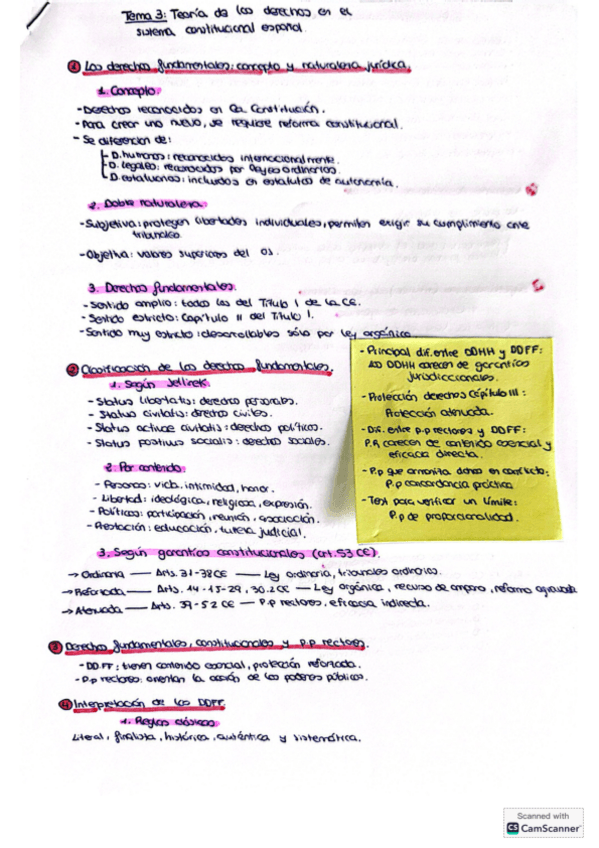 Tema 3: Teoría de los derechos en el
sistema constitucional español.
① Los derechos fundamentales: concepto y naturaleza jurídica.
1. Concepto.
- Derechos reconocidos en la Constitución.
- Para crear uno nuevo, se requiere reforma constitucional.
- Se diferencian de:
D. humanos: reconocidos internacionalmente.
D. legales: reconocidos por leyes ordinarias.
D. estatutarios: incluidos en estatutos de autonomía.
2. Doble naturaleza.
- Subjetiva: protegen libertades individuales, permiten exigir su cumplimiento ante
tribunales.
- Objetiva: valores superiores del OJ.
3. Derechos fundamentales.
- Sentido amplio: todos los del Título I de la CE.
- Sentido estricto: Capítulo II del Título I.
- Sentido muy estricto: desarrollables sólo por ley orgánica
② Clasificación de los derechos fundamentales.
1. Según Jellinek.
- Status libertatis: derechos personales.
- Status civitatis: derechos civiles.
- Status activae civitatis: derechos políticos.
- Status positivus socialis: derechos sociales.
2. Por contenido.
- Persona: vida, intimidad, honor.
- Libertad: ideológica, religiosa, expresión.
- Políticos: participación, reunión, asociación.
- Prestación: educación, tutela judicial.
- Principal dif. entre DDHH y DDFF:
los DDHH carecen de garantías
jurisdiccionales.
- Protección derechos Capítulo III:
Protección atenuada.
- Dif. entre p.p rectores y DDFF:
P.R carecen de contenido esencial y
eficacia directa.
- P.p que armoniza dchos en conflicto:
P.p concordancia práctica
- Test para verificar un límite:
P.p de proporcionalidad.
3. Según garantías constitucionales (art. 53 CE).
→ Ordinaria — Arts. 31-38CE — Ley ordinaria, tribunales ordinarios.
→ Reforzada — Arts. 14-15-29, 30.2CE — Ley orgánica, recurso de amparo, reforma agravada
→ Atenuada — Arts. 39-52 CE — P.p rectores, eficacia indirecta.
③ Derechos fundamentales, constitucionales y p.p rectores.
- DDFF: tienen contenido esencial, protección reforzada.
- P.p rectores: orientan la acción de los poderes públicos.
④ Interpretación de los DDFF.
1. Reglas clásicas.
Literal, finalista, histórica, auténtica y sistemática.
Scanned with
CS CamScanner